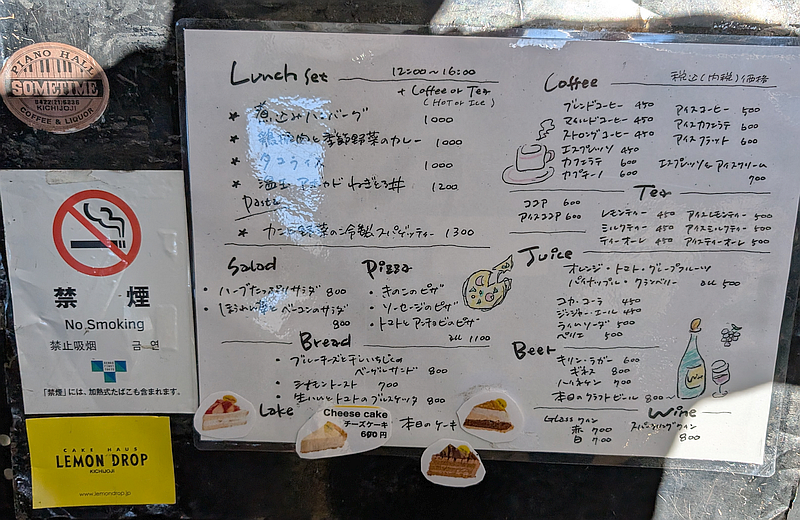 PIANO HALL
SOMETIME
0422(21)6336
KICHIJOJI
COFFEE & LIQUOR
禁 煙
No Smoking
禁止吸烟 금연
「禁煙」には、加熱式たばこも含まれます。
CAKE HAUS
LEMON DROP
KICHIJOJI
www.lemondrop.jp
Lunch set 12:00~16:00
+ Coffee or Tea
(HOT or ICE)
* 煮込みハンバーグ 1000
* 鶏肉と季節野菜のカレー 1000
* タコライス 1000
* アボカドねぎとろ丼 1200
Pasta
* カニと野菜の冷製スパゲッティー 1300
Salad
・ハーブたっぷりサラダ 800
・ほうれん草とベーコンのサラダ
800
Pizza
・きのこのピザ
・ソーセージのピザ
・トマトとアンチョビのピザ
all 1100
Bread
・ブルーチーズと干しいちじくの
ベーグルサンド 800
・シナモントースト 700
・生ハムとトマトのブルスケッタ 800
Cake
Cheese cake
チーズケーキ
600円
本日のケーキ
Coffee 税込(内税)価格
ブレンドコーヒー 450
マイルドコーヒー 450
ストロングコーヒー 450
エスプレッソ 450
カフェラテ 600
カプチーノ 600
アイスコーヒー 500
アイスカフェラテ 600
アイスフラット 600
エスプレッソ&アイスクリーム
700
Tea
ココア 600
アイスココア 600
レモンティー 450 アイスレモンティー 500
ミルクティー 450 アイスミルクティー 500
ティーオーレ 450 アイスティーオーレ 500
Juice
オレンジ・トマト・グレープフルーツ
パイナップル・クランベリー all 500
コカ・コーラ 450
ジンジャーエール 450
ライムソーダ 500
ペリエ 500
Beer
キリン・ラガー 600
ギネス 800
ハイネケン 700
本日のクラフトビール 800~
Wine
Glass ワイン
赤 700
白 700
スパークリングワイン
800